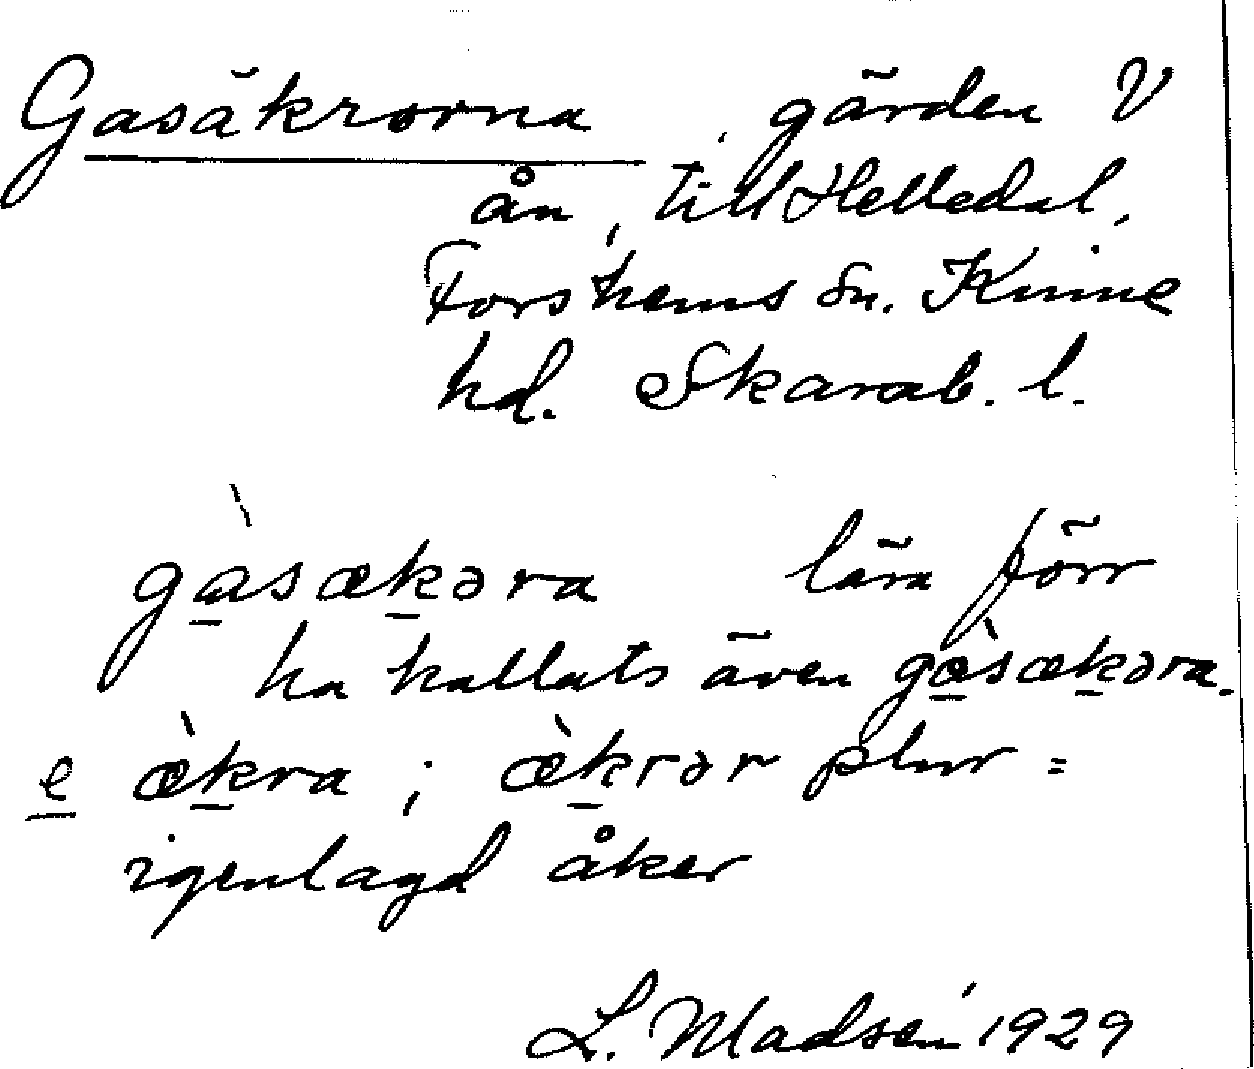 Gasäkrorna, gärden V
ån, till Helledal,
Forshems sn. Kinne
hd. Skarab. l.
gàsækəra lära förr
ha kallats även gòsækəra.
e ækra; ækrər plur =
igenlagd åker
L. Madsén 1929